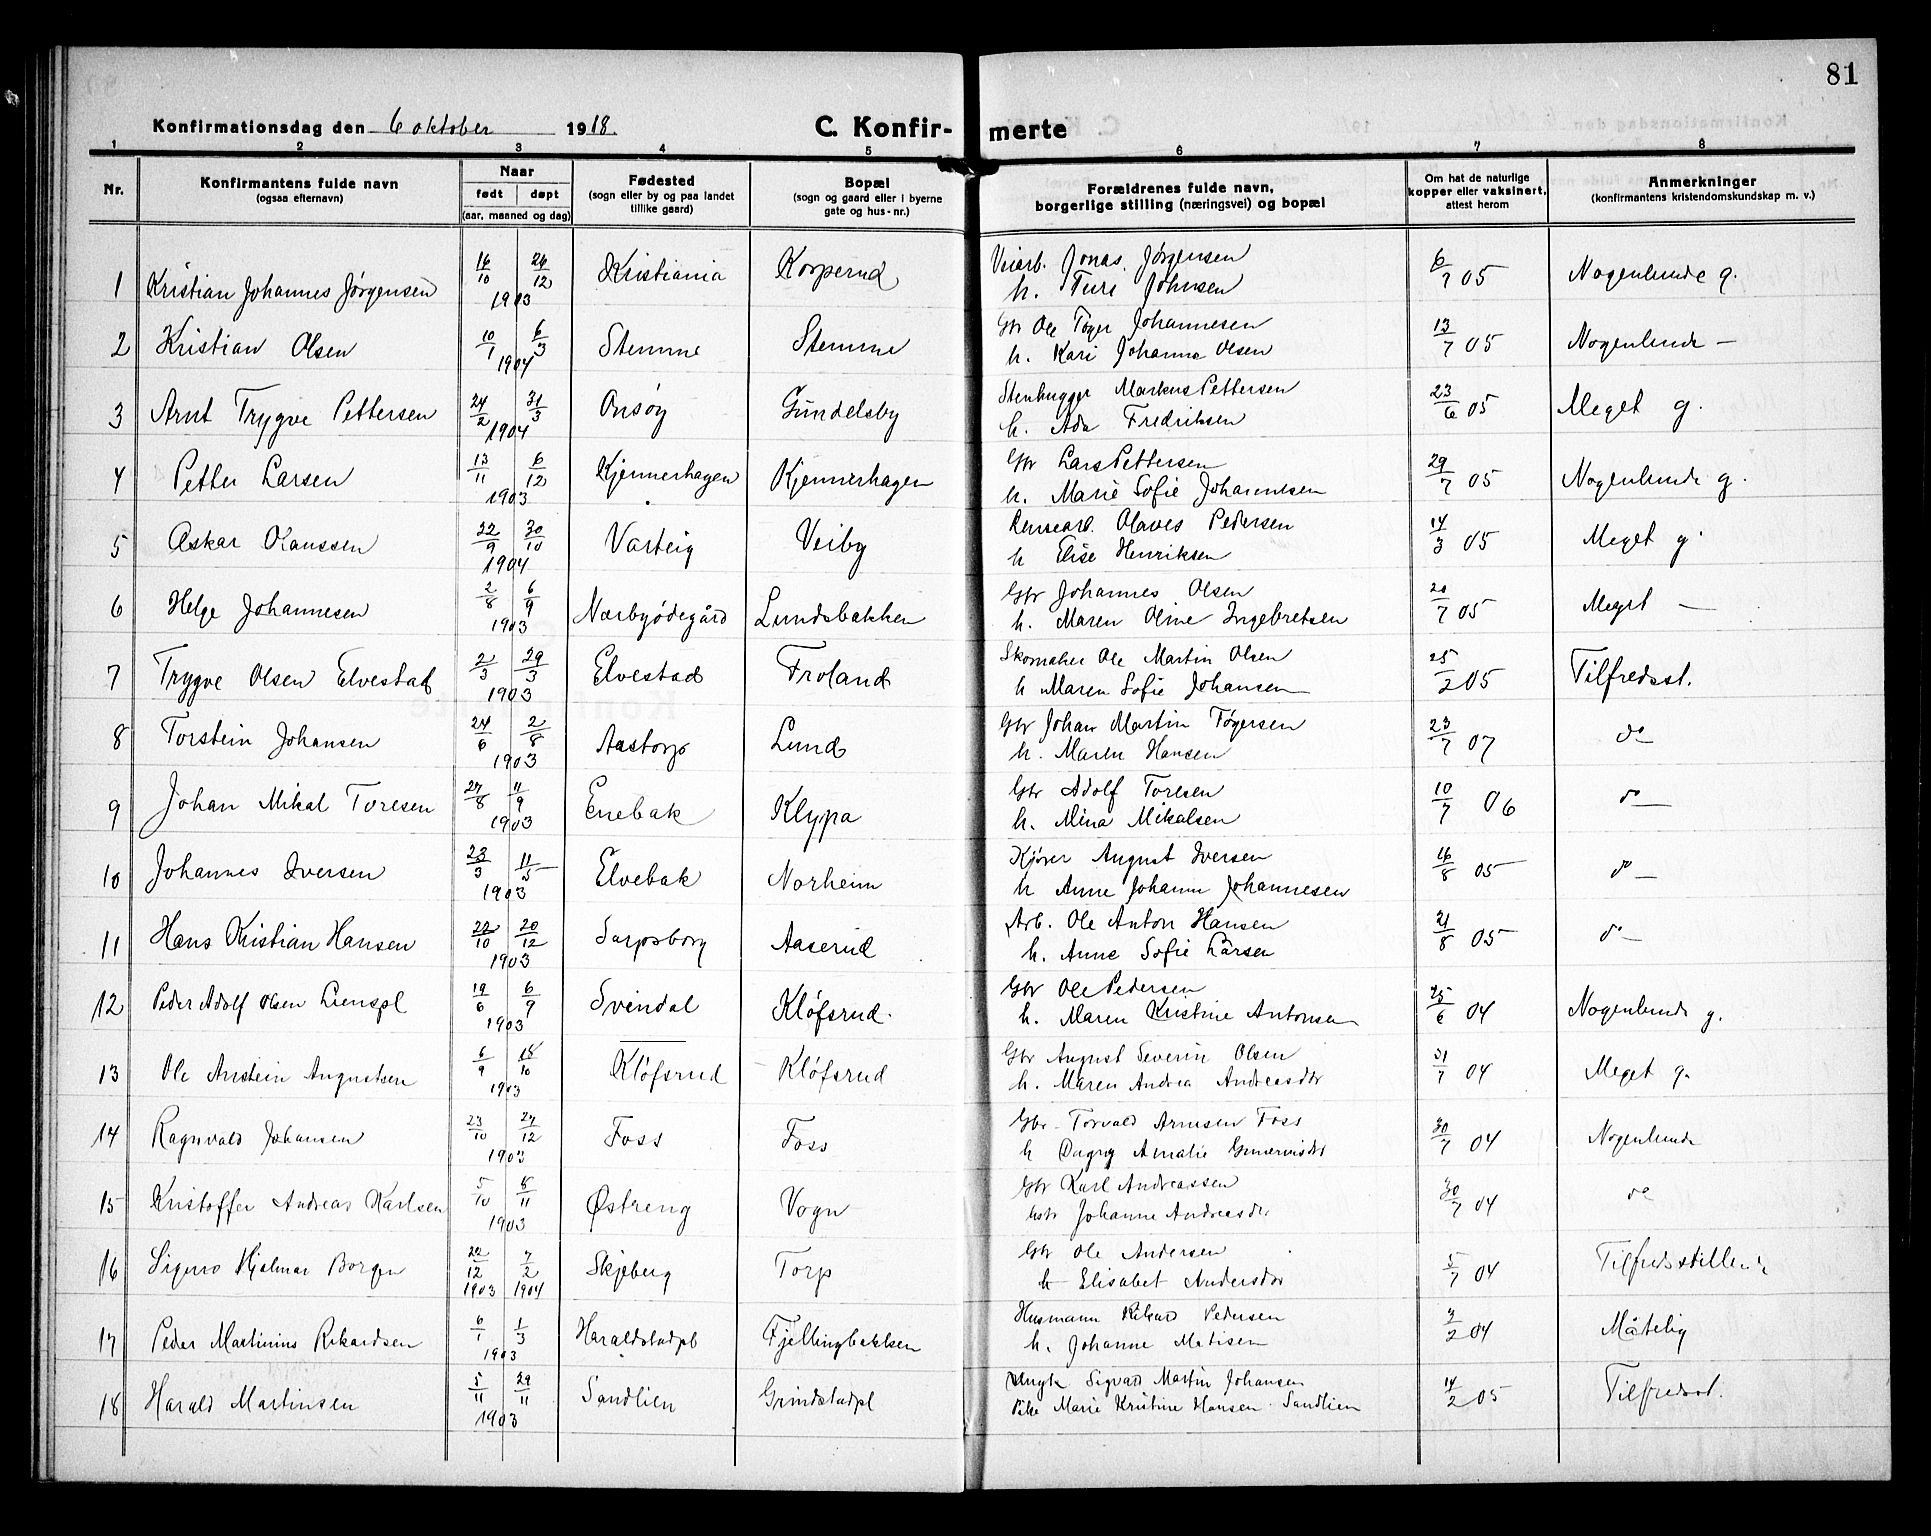 81
Konfirmationsdag den 6 oktober 1918. C. Konfir- merte
1 2 3 4 5 6 7 8
Nr. Konfirmantens fulde navn (ogsaa efternavn) Naar født døpt (aar, maaned og dag) Fødested (sogn eller by og paa landet tillike gaard) Bopæl (sogn og gaard eller i byerne gate og hus-nr.) Forældrenes fulde navn, borgerlige stilling (næringsvei) og bopæl Om hat de naturlige kopper eller vaksinert, attest herom Anmerkninger (konfirmantens kristendomskundskap m. v.)
1 Kristian Johannes Jørgensen 16/10 26/12 1903 Kristiania Korperud Veiarb. Jonas Jørgensen
h. Ture Johnsen 6/7 05 Nogenlunde g.
2 Kristian Olsen 10/1 6/3 1904 Stemme Stemme Gbr Ole Tøger Johannesen
h. Kari Johanna Olsen 13/7 05 Nogenlunde —
3 Arnt Trygve Pettersen 24/2 31/3 1904 Onsøy Gundelsby Stenhugger Markus Pettersen
h. Ada Fredriksen 23/6 05 Meget g.
4 Petter Larsen 13/11 6/12 1903 Kjennerhagen Kjennerhagen Gbr Lars Pettersen
h. Marie Sofie Johannesen 29/7 05 Nogenlunde g.
5 Oskar Olaussen 22/9 30/10 1904 Varteig Veiby Olaves Pedersen
h Elise Henriksen 14/3 05 Meget g.
6 Helge Johannesen 2/8 6/9 1903 Nærbyødegård Lundsbakken Gbr Johannes Olsen
h. Maren Oline Ingebretsen 20/7 05 Meget —
7 Trygve Olsen Elvestad 2/3 29/3 1903 Elvestad Froland Skomaker Ole Martin Olsen
h Maren Sofie Johansen 25/2 05 Tilfredsst.
8 Torstein Johansen 24/6 2/8 1903 Aastorp Lund Gbr Johan Martin Tøgersen
h. Maren Hansen 23/7 07 do
9 Johan Mikal Toresen 27/8 11/9 1903 Enebak Klypa Gbr Adolf Toresen
h. Mina Mikalsen 10/7 06 do —
10 Johannes Iversen 23/3 11/5 1903 Elvebak Norheim Kjører August Iversen
h Anne Johanne Johannesen 16/8 05 do —
11 Hans Kristian Hansen 22/10 20/12 1903 Sarpsborg Aaserud Arb. Ole Anton Hansen
h. Anne Sofie Larsen 21/8 05 do —
12 Peder Adolf Olsen Lienspl 19/6 6/9 1903 Svindal Kløfsrud. Gbr Ole Pedersen
h. Maren Kristine Antonsen 25/6 04 Nogenlunde g.
13 Ole Anstein Augustsen 6/9 18/10 1903 Kløfsrud Kløfsrud Gbr August Severin Olsen
h. Maren Andrea Andreasdtr 31/7 04 Meget g.
14 Ragnvald Johansen 23/10 27/12 1903 Foss Foss Gbr. Torvald Arnesen Foss
h Dagny Amalie 30/7 04 Nogenlunde
15 Kristoffer Andreas Karlsen 5/10 8/11 1903 Østreng Vogn Gbr Karl Andreassen
Johanne Andreasdr 30/7 04 do
16 Hjalmar Borgen 22/12 1903 7/2 1904 Skjeberg Torp Gbr Ole Andersen
h Elisabet Andersdtr 5/7 04 Tilfredsstillende
17 Peder Martinius Rikardsen 6/1 1/3 1903 Haraldstadpl Fjellingbakken Husmann Rikard Pedersen
h. Johanne Matisen 3/2 04 Måtelig
18 Harald Martinsen 5/11 29/11 1903 Sandlien Grindstadpl Ungk Sigvard Martin Johansen
Pike Marie Kristine Hansen Sandlien 14/2 05 Tilfredsst.